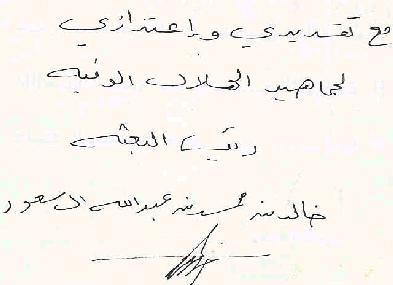 مع تقديري وإعتذاري
لجماهير الهلال الوفيه
رئيس البعثه
خالد بن محمد بن عبدالله ال سعود